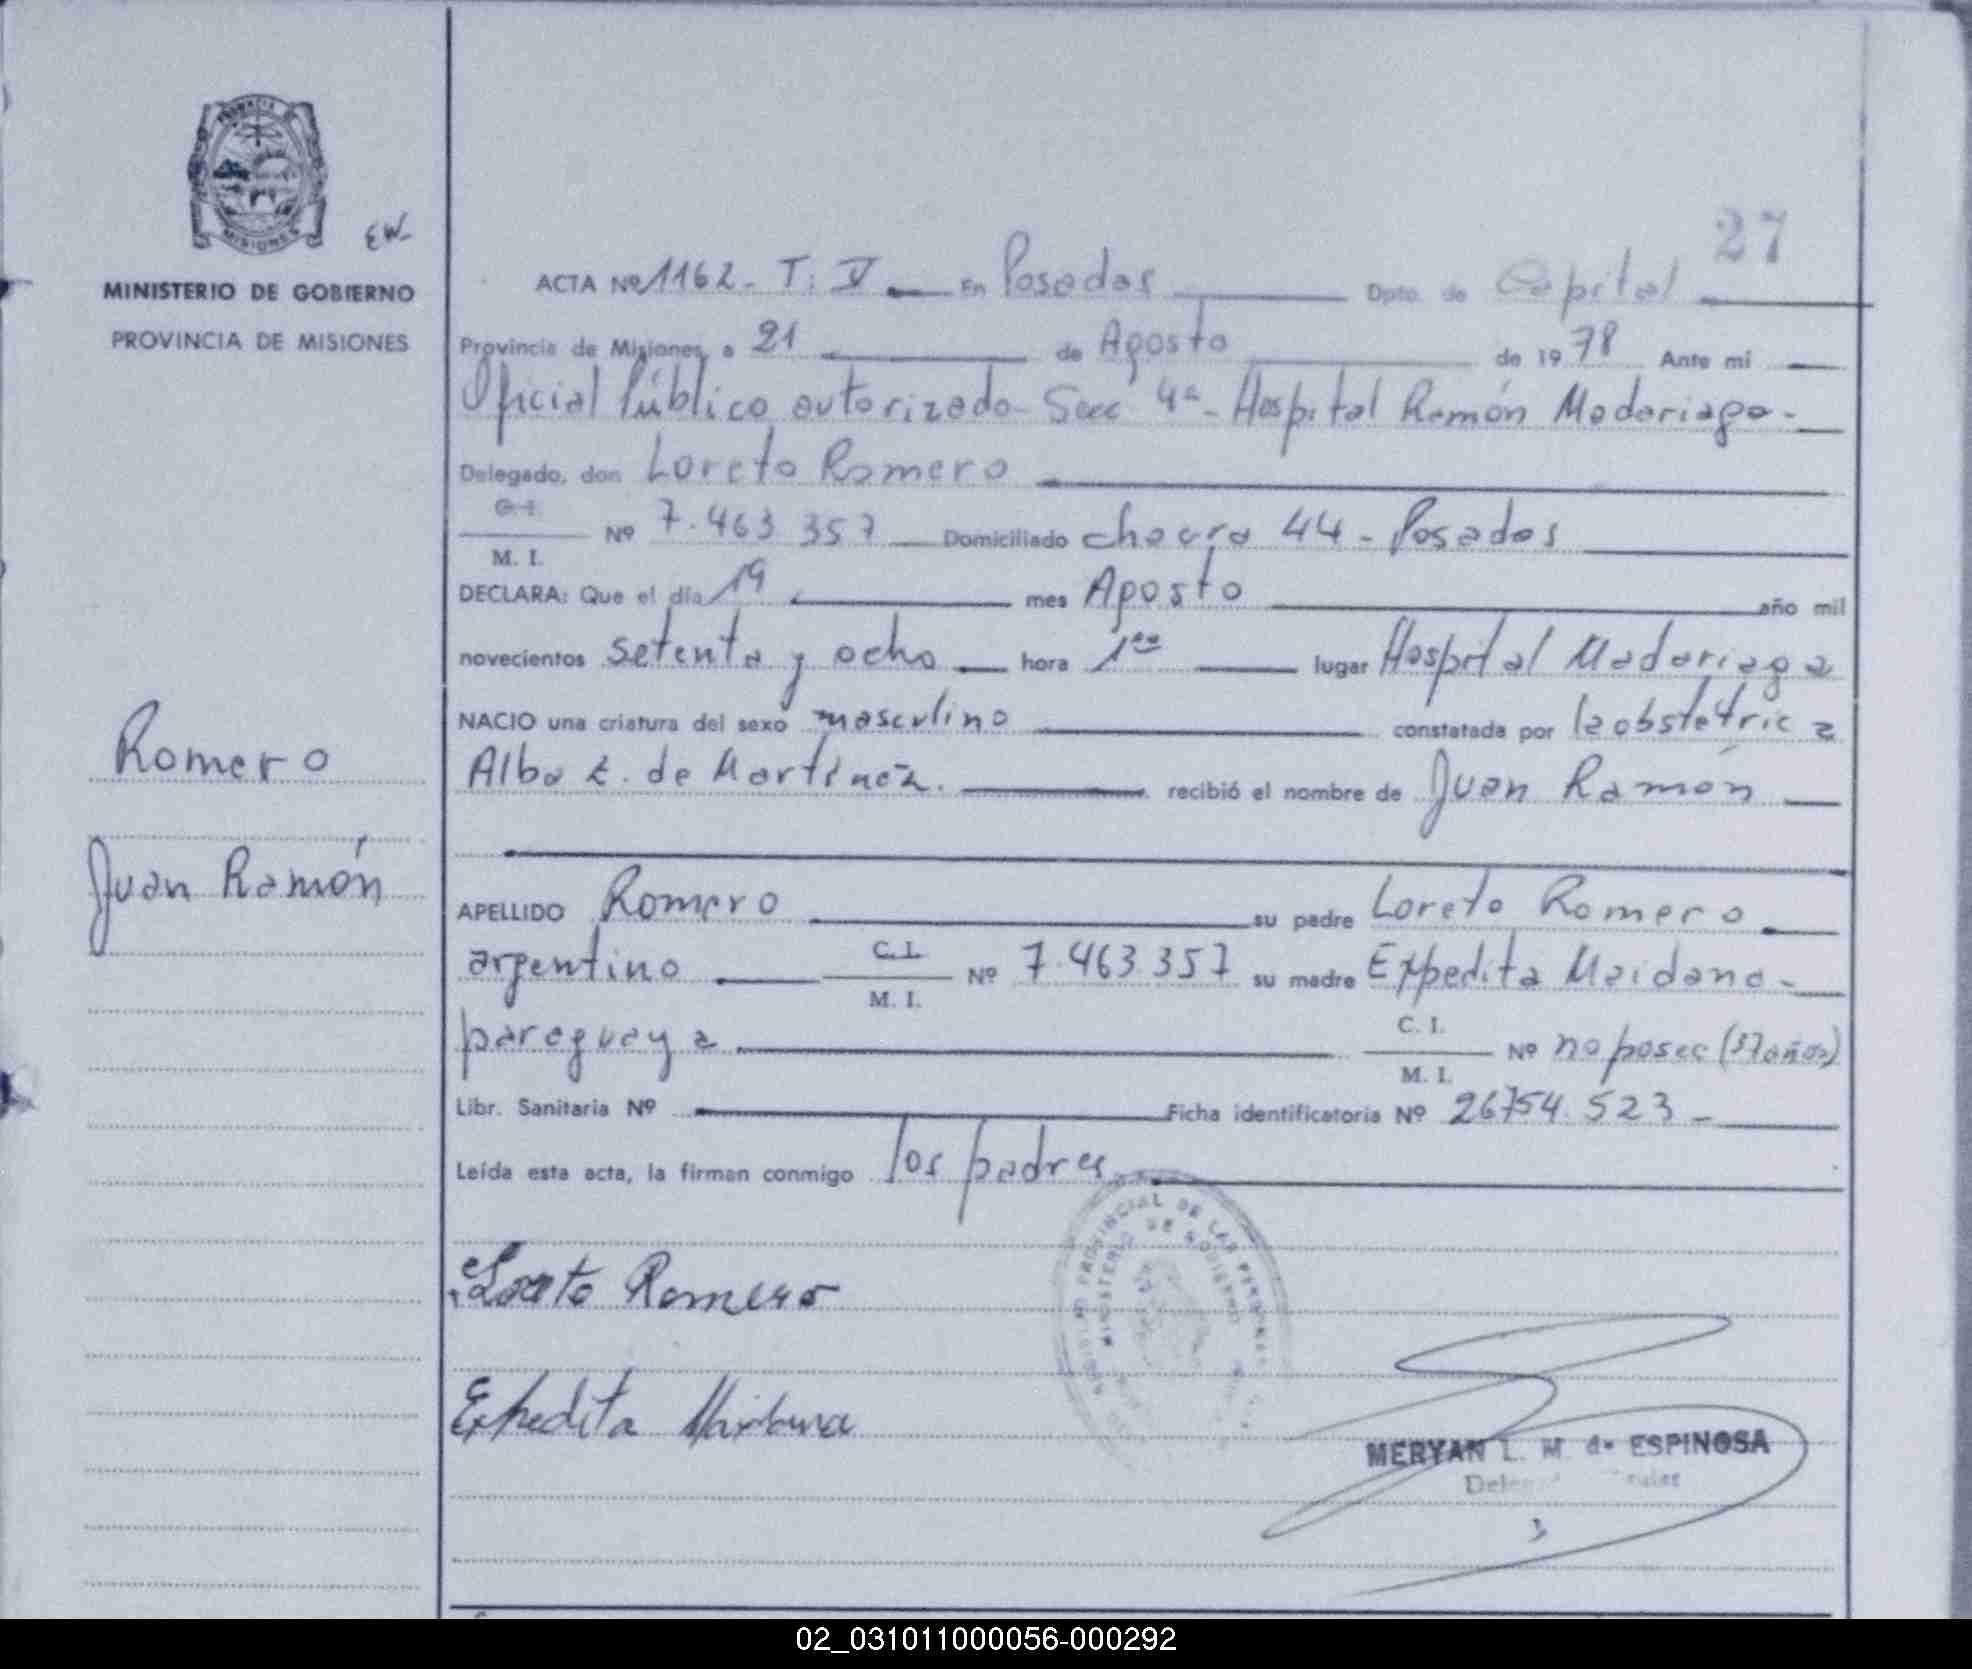 PROVINCIA DE
MISIONES
EW-
MINISTERIO DE GOBIERNO
PROVINCIA DE MISIONES
Romero
Juan Ramón
27
ACTA Nº 1162 - T: V En Posadas Dpto. de Capital
Provincia de Misiones, a 21 de Agosto de 1978 Ante mi
Oficial Público autorizado - Secc 4ª - Hospital Ramón Madariaga -
Delegado, don Loreto Romero
C. I.
M. I.
Nº 7.463 357 Domiciliado chacra 44 - Posadas
DECLARA: Que el día 19 mes Agosto año mil
novecientos setenta y ocho hora 1ºº lugar Hospital Madariaga
NACIO una criatura del sexo masculino constatada por la obstetrica
Alba E. de Martinez. recibió el nombre de Juan Ramón
APELLIDO Romero su padre Loreto Romero
argentino C. I. M. I. Nº 7.463.357 su madre Expedita Maidana -
paraguaya C. I. M. I. Nº no posee (37 años)
Libr. Sanitaria Nº Ficha identificatoria Nº 26754.523 -
Leída esta acta, la firman conmigo los padres
Loreto Romero
Expedita Maidana
PROVINCIAL DE LAS PERSONAS
MINISTERIO DE GOBIERNO
MERYAN L. M. de ESPINOSA
02_031011000056-000292